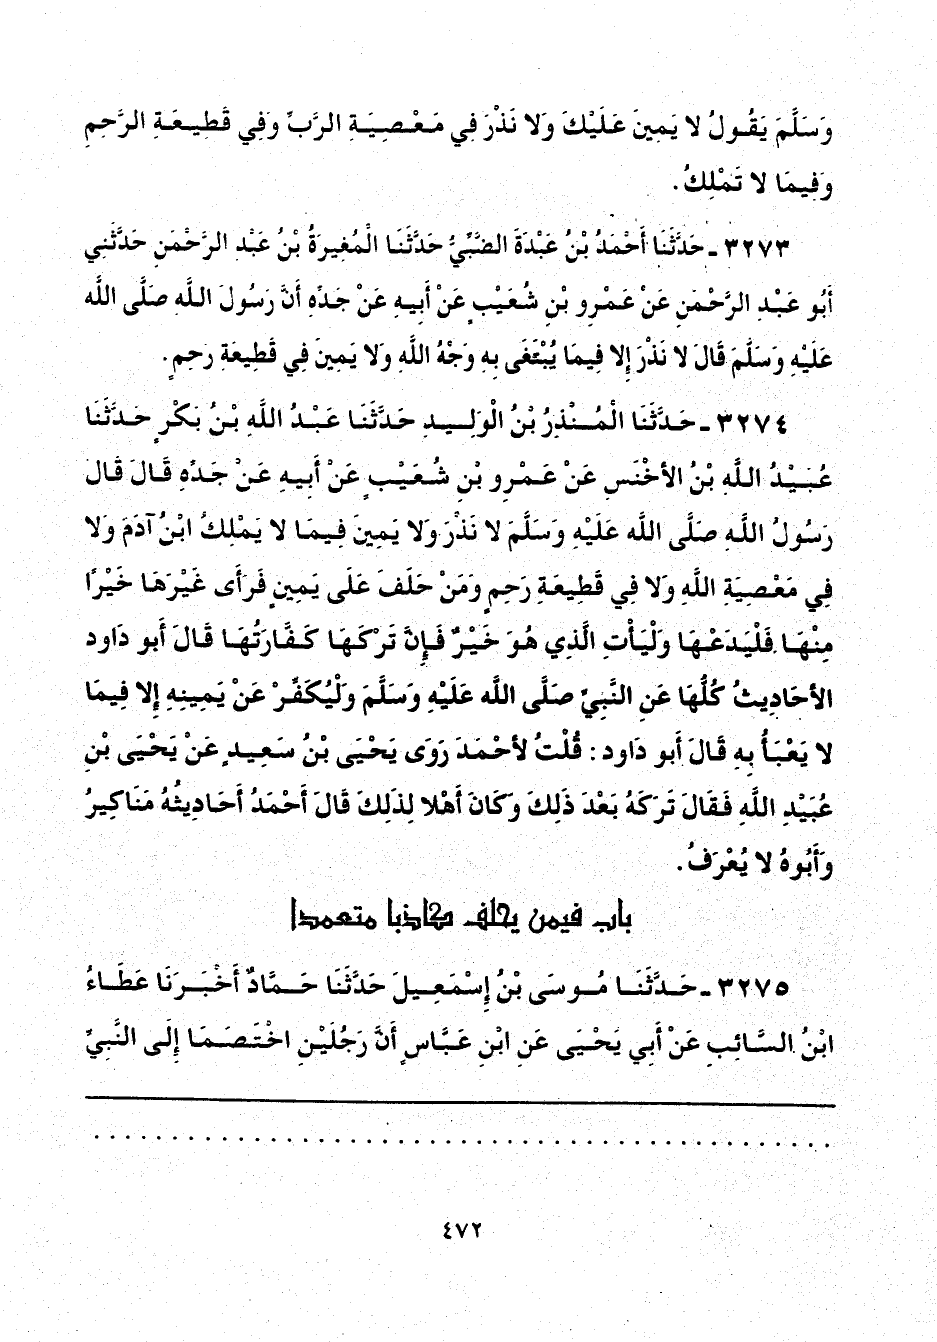 وَسَلَّمَ يَقُولُ لا يَمِينَ عَلَيْكَ وَلا نَذْرَ فِي مَعْصِيَةِ الرَّبِّ وَفِي قَطِيعَةِ الرَّحِمِ
وَفِيمَا لا تَمْلِكُ.
٣٢٧٣ ـ حَدَّثَنَا أَحْمَدُ بْنُ عَبْدَةَ الضَّبِّيُّ حَدَّثَنَا الْمُغِيرَةُ بْنُ عَبْدِ الرَّحْمَنِ حَدَّثَنِي
أَبُو عَبْدِ الرَّحْمَنِ عَنْ عَمْرِو بْنِ شُعَيْبٍ عَنْ أَبِيهِ عَنْ جَدِّهِ أَنَّ رَسُولَ اللَّهِ صَلَّى اللَّه
عَلَيْهِ وَسَلَّمَ قَالَ لا نَذْرَ إِلا فِيمَا يُبْتَغَى بِهِ وَجْهُ اللَّهِ وَلا يَمِينَ فِي قَطِيعَةِ رَحِمٍ.
٣٢٧٤ ـ حَدَّثَنَا الْمُنْذِرُ بْنُ الْوَلِيدِ حَدَّثَنَا عَبْدُ اللَّهِ بْنُ بَكْرٍ حَدَّثَنَا
عُبَيْدُ اللَّهِ بْنُ الأَخْنَسِ عَنْ عَمْرِو بْنِ شُعَيْبٍ عَنْ أَبِيهِ عَنْ جَدِّهِ قَالَ قَالَ
رَسُولُ اللَّهِ صَلَّى اللَّه عَلَيْهِ وَسَلَّمَ لا نَذْرَ وَلا يَمِينَ فِيمَا لا يَمْلِكُ ابْنُ آدَمَ وَلا
فِي مَعْصِيَةِ اللَّهِ وَلا فِي قَطِيعَةِ رَحِمٍ وَمَنْ حَلَفَ عَلَى يَمِينٍ فَرَأَى غَيْرَهَا خَيْرًا
مِنْهَا فَلْيَدَعْهَا وَلْيَأْتِ الَّذِي هُوَ خَيْرٌ فَإِنَّ تَرْكَهَا كَفَّارَتُهَا قَالَ أَبو دَاود
الأَحَادِيثُ كُلُّهَا عَنِ النَّبِيِّ صَلَّى اللَّه عَلَيْهِ وَسَلَّمَ وَلْيُكَفِّرْ عَنْ يَمِينِهِ إِلا فِيمَا
لا يَعْبَأُ بِهِ قَالَ أَبو دَاود: قُلْتُ لأَحْمَدَ رَوَى يَحْيَى بْنُ سَعِيدٍ عَنْ يَحْيَى بْنِ
عُبَيْدِ اللَّهِ فَقَالَ تَرَكَهُ بَعْدَ ذَلِكَ وَكَانَ أَهْلا لِذَلِكَ قَالَ أَحْمَدُ أَحَادِيثُهُ مَنَاكِيرُ
وَأَبُوهُ لا يُعْرَفُ.
باب فيمن يحلف كاذبا متعمدا
٣٢٧٥ ـ حَدَّثَنَا مُوسَى بْنُ إِسْمَعِيلَ حَدَّثَنَا حَمَّادٌ أَخْبَرَنَا عَطَاءُ
ابْنُ السَّائِبِ عَنْ أَبِي يَحْيَى عَنِ ابْنِ عَبَّاسٍ أَنَّ رَجُلَيْنِ اخْتَصَمَا إِلَى النَّبِيِّ
٤٧٢